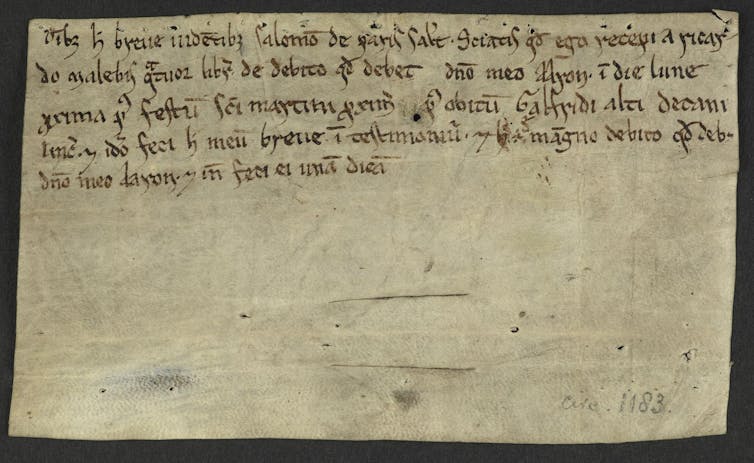 Oībȝ h̄ breue uidētibȝ salomō de paris salt̄. Sciatis qđ ego recepi a ricar-
do malebis q̄tuor libr̄ de debito qđ debet dn̄o meo Aaron. ī die lune
proxima p̄ festū sc̄i martini proxim̄ p̄ obitū Galfridi alti decani
linc̄. ⁊ ido feci h̄ meū breue. ī testimoniū. ⁊ h̄ ē magno debito qđ deb-
dn̄o meo Aaron. ⁊ in̄ feci ei unā dicā
circ. 1183.